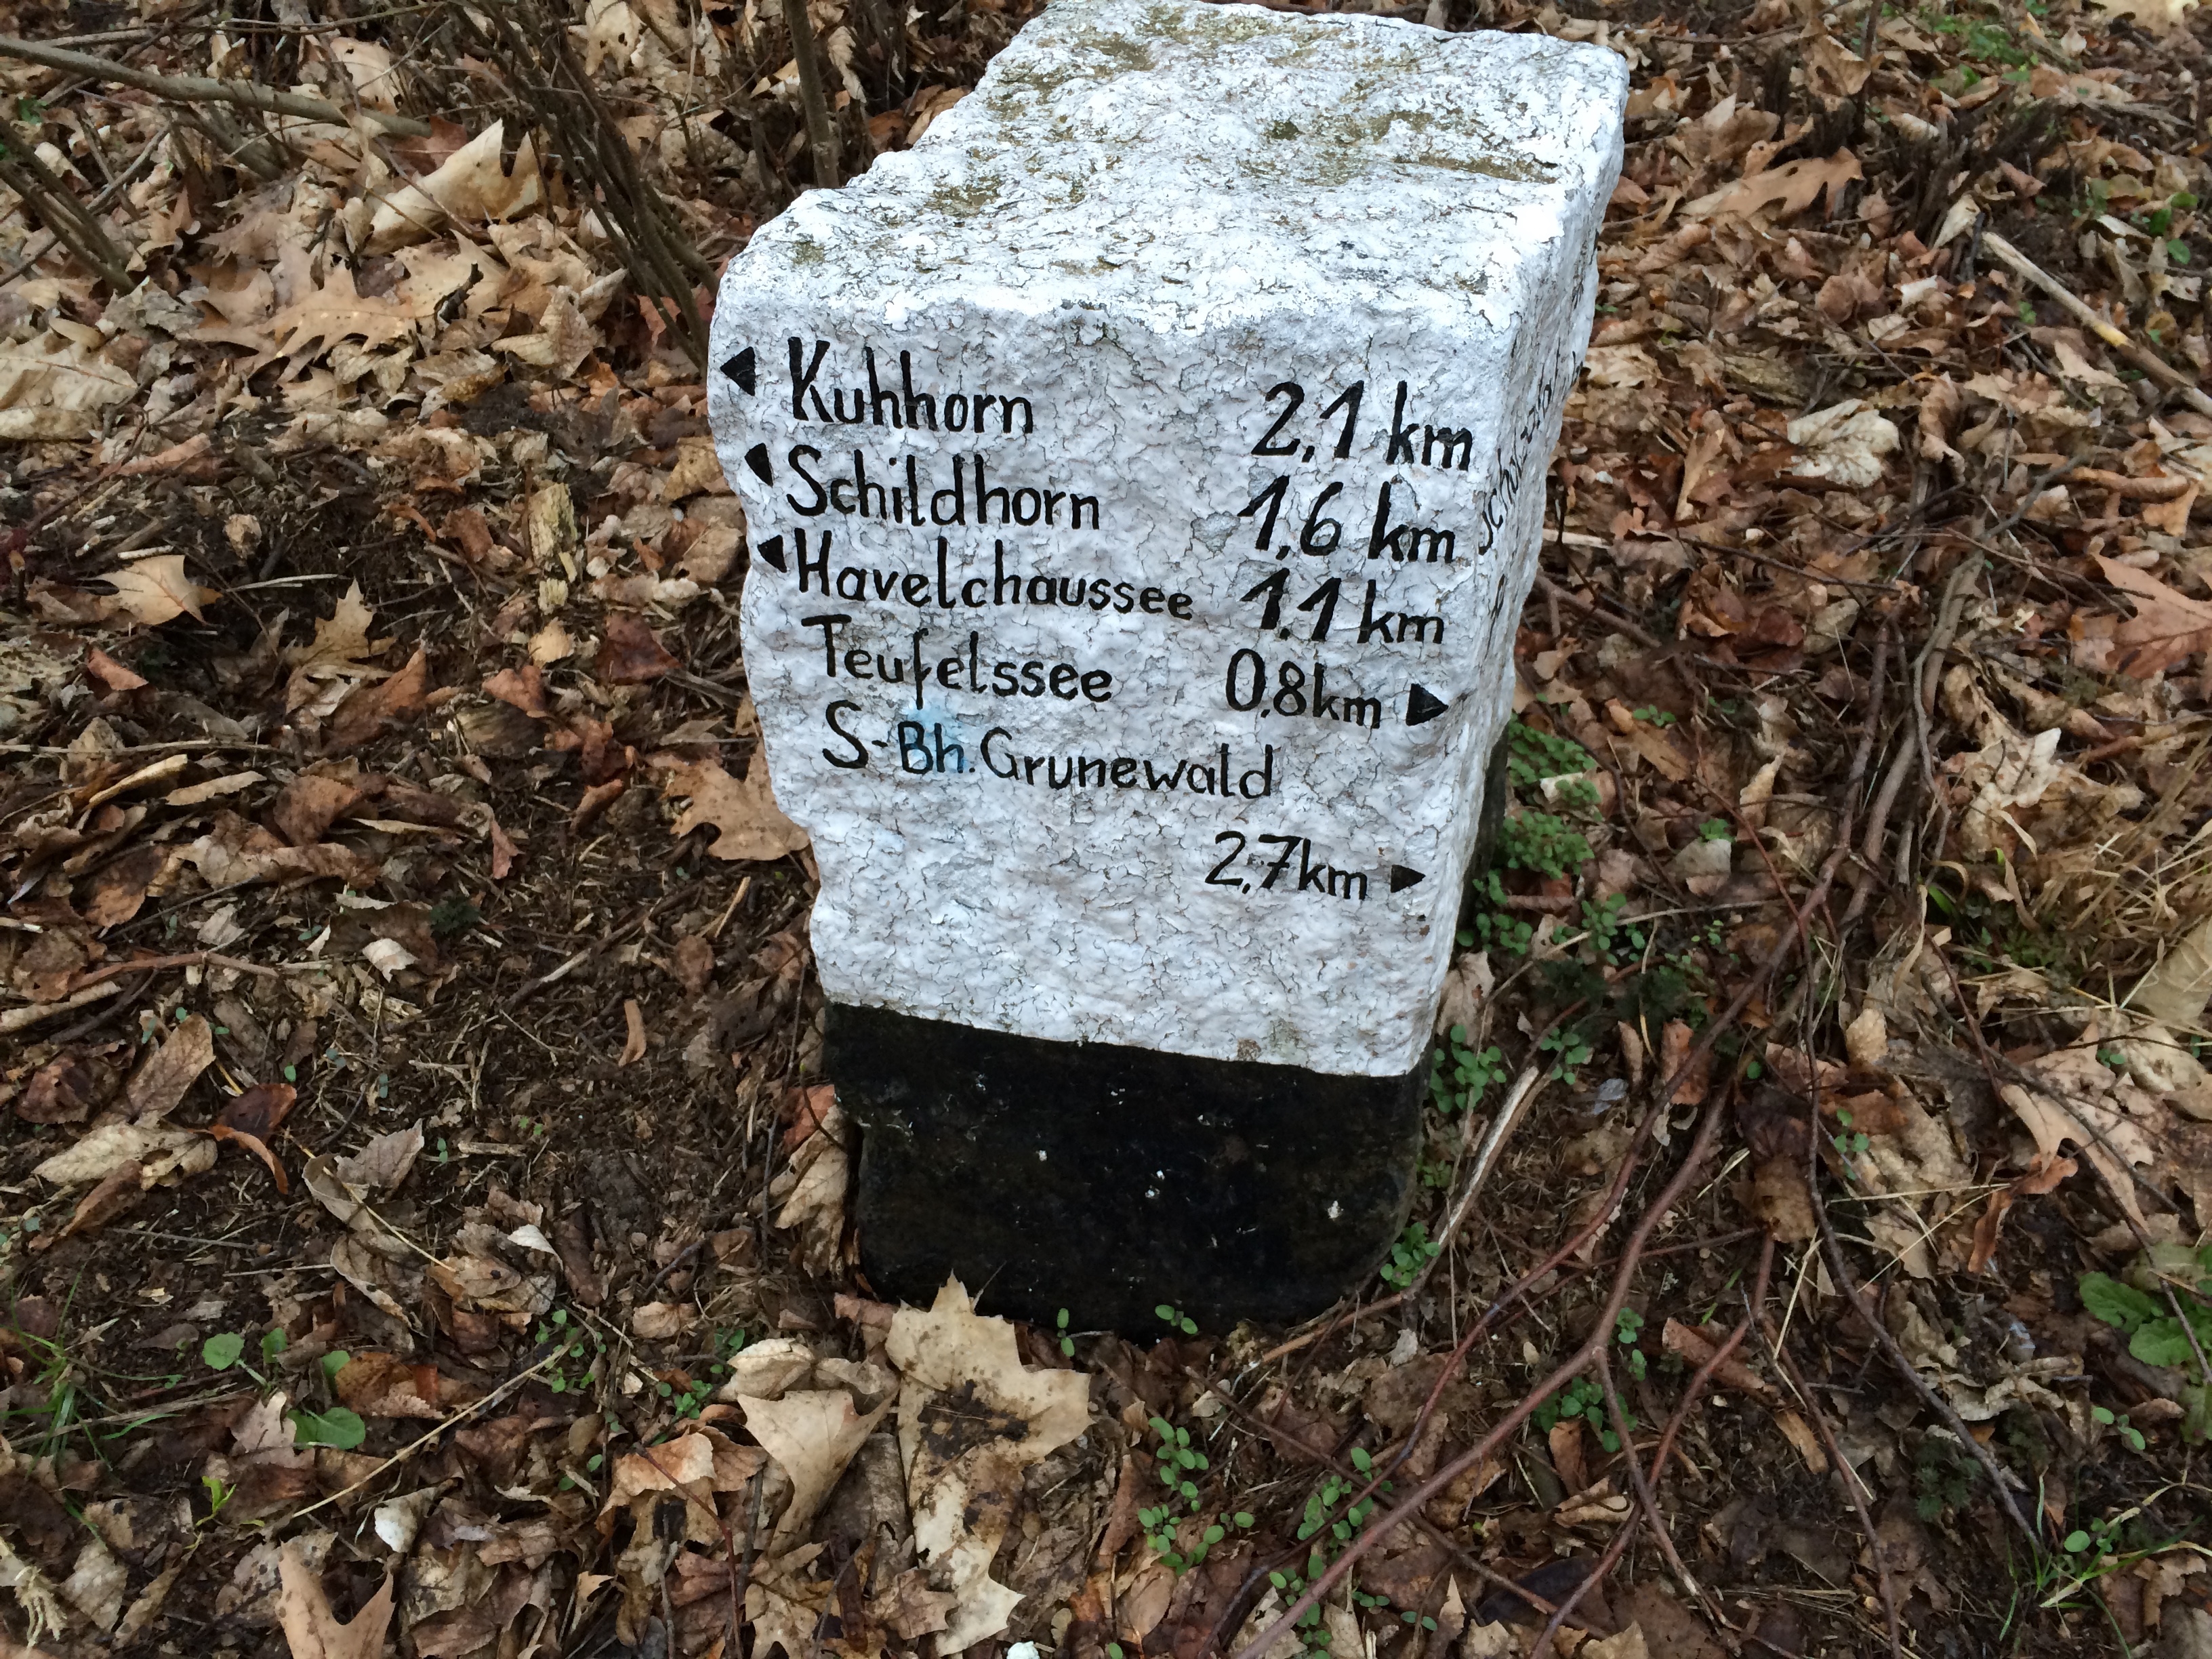 ◀ Kuhhorn 2,1 km
◀ Schildhorn 1,6 km
◀ Havelchaussee 1,1 km
Teufelssee 0,8km ▶
S-Bh. Grunewald
2,7km ▶